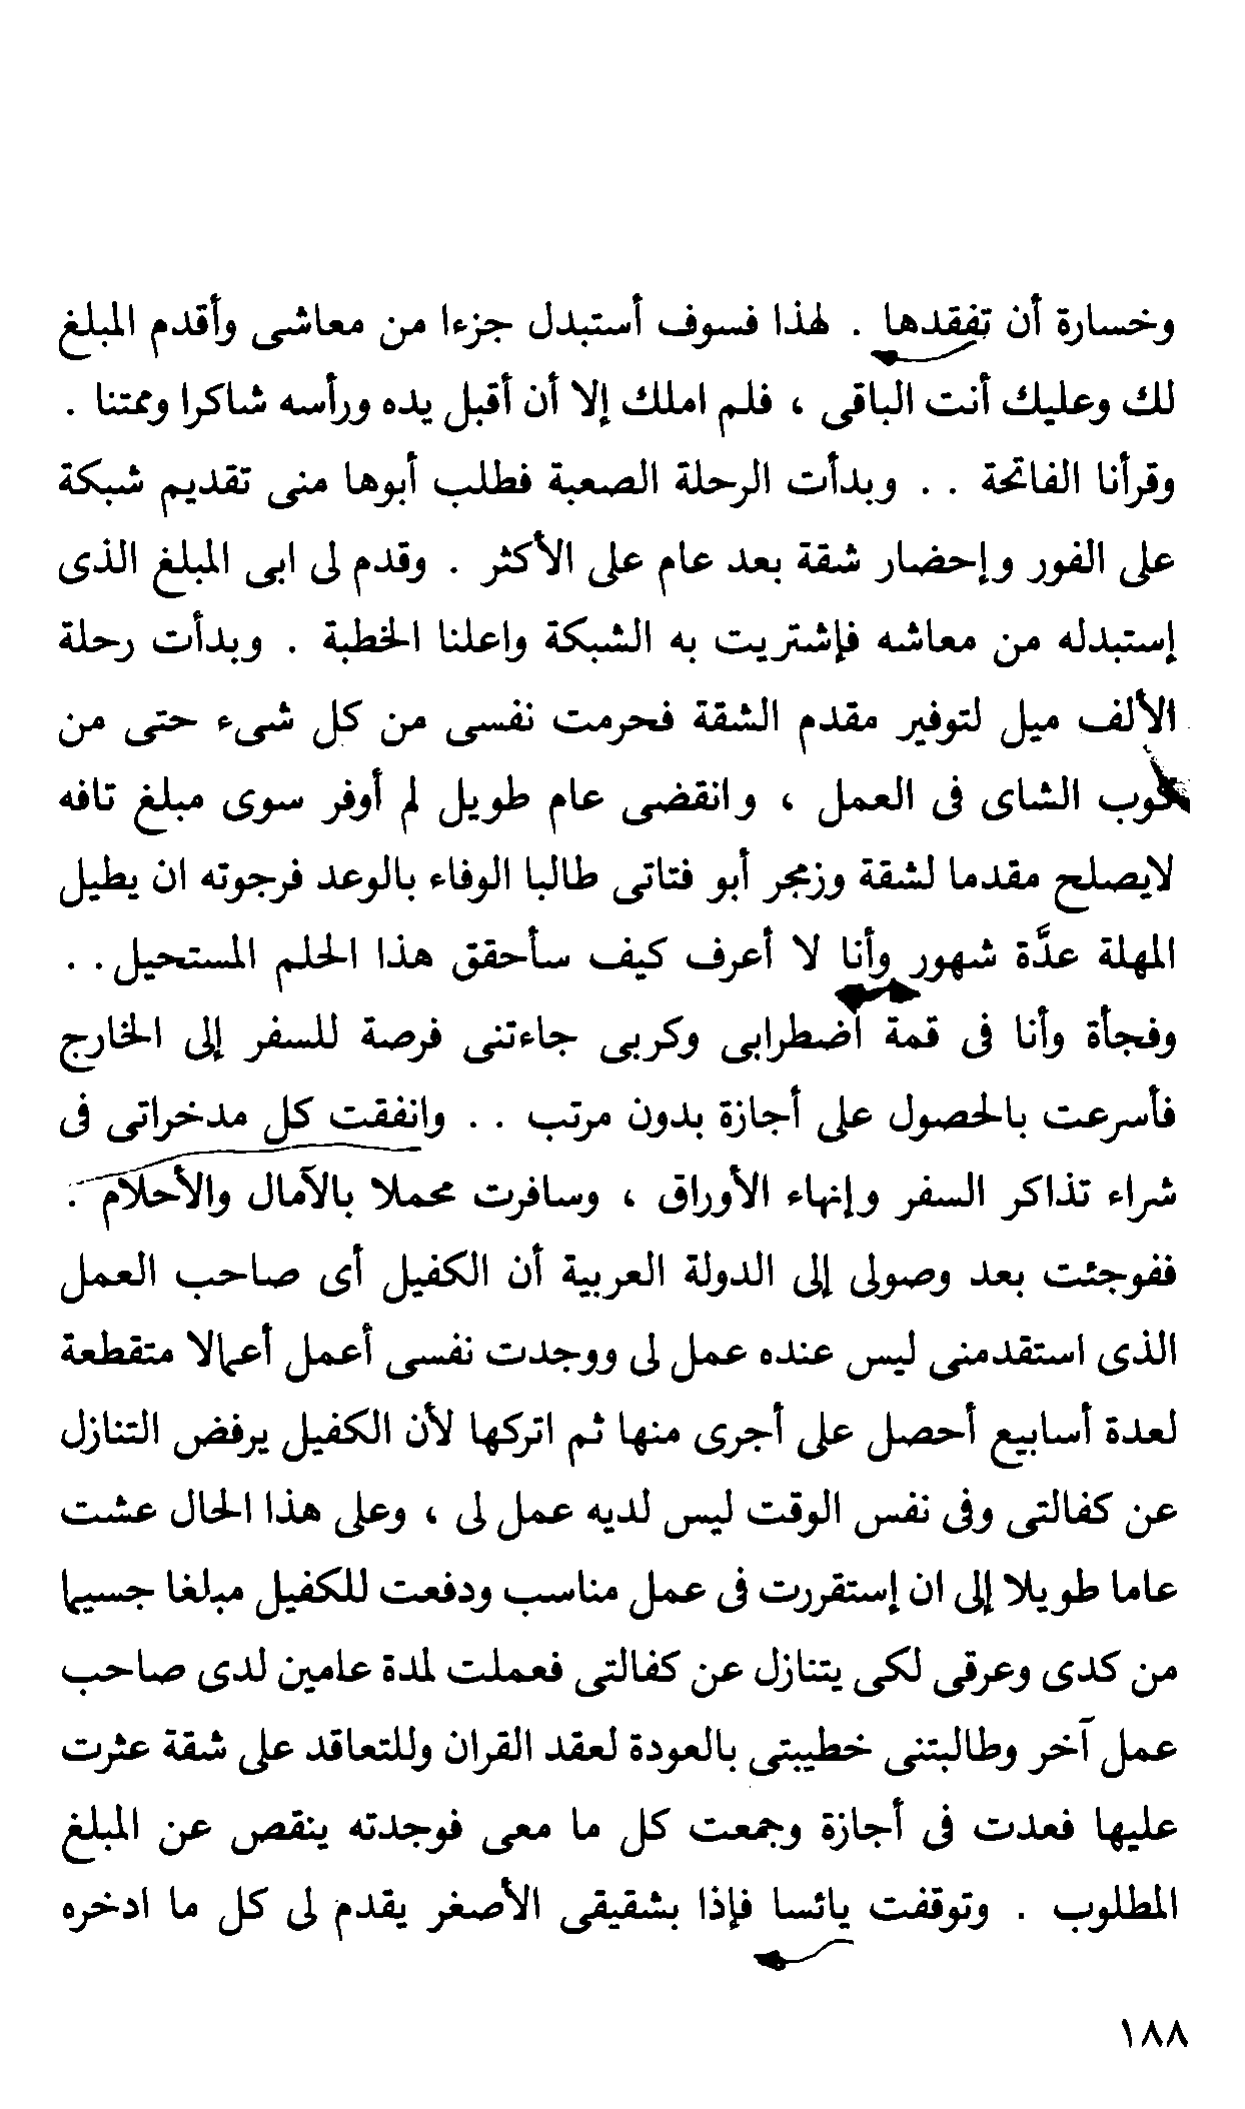 وخسارة أن تفقدها . لهذا فسوف أستبدل جزءا من معاشى وأقدم المبلغ
لك وعليك أنت الباقى ، فلم املك إلا أن أقبل يده ورأسه شاكرا وممتنا .
وقرأنا الفاتحة . . وبدأت الرحلة الصعبة فطلب أبوها منى تقديم شبكة
على الفور وإحضار شقة بعد عام على الأكثر . وقدم لى ابى المبلغ الذى
إستبدله من معاشه فإشتريت به الشبكة واعلنا الخطبة . وبدأت رحلة
الألف ميل لتوفير مقدم الشقة فحرمت نفسى من كل شىء حتى من
كوب الشاى فى العمل ، وانقضى عام طويل لم أوفر سوى مبلغ تافه
لايصلح مقدما لشقة وزمجر أبو فتاتى طالبا الوفاء بالوعد فرجوته ان يطيل
المهلة عدَّة شهور وأنا لا أعرف كيف سأحقق هذا الحلم المستحيل . .
وفجأة وأنا فى قمة اضطرابى وكربى جاءتنى فرصة للسفر إلى الخارج
فأسرعت بالحصول على أجازة بدون مرتب . . وانفقت كل مدخراتى فى
شراء تذاكر السفر وإنهاء الأوراق ، وسافرت محملا بالآمال والأحلام .
ففوجئت بعد وصولى إلى الدولة العربية أن الكفيل أى صاحب العمل
الذى استقدمنى ليس عنده عمل لى ووجدت نفسى أعمل أعمالا متقطعة
لعدة أسابيع أحصل على أجرى منها ثم اتركها لأن الكفيل يرفض التنازل
عن كفالتى وفى نفس الوقت ليس لديه عمل لى ، وعلى هذا الحال عشت
عاما طويلا إلى ان إستقررت فى عمل مناسب ودفعت للكفيل مبلغا جسيما
من كدى وعرقى لكى يتنازل عن كفالتى فعملت لمدة عامين لدى صاحب
عمل آخر وطالبتنى خطيبتى بالعودة لعقد القران وللتعاقد على شقة عثرت
عليها فعدت فى أجازة وجمعت كل ما معى فوجدته ينقص عن المبلغ
المطلوب . وتوقفت يائسا فإذا بشقيقى الأصغر يقدم لى كل ما ادخره
١٨٨